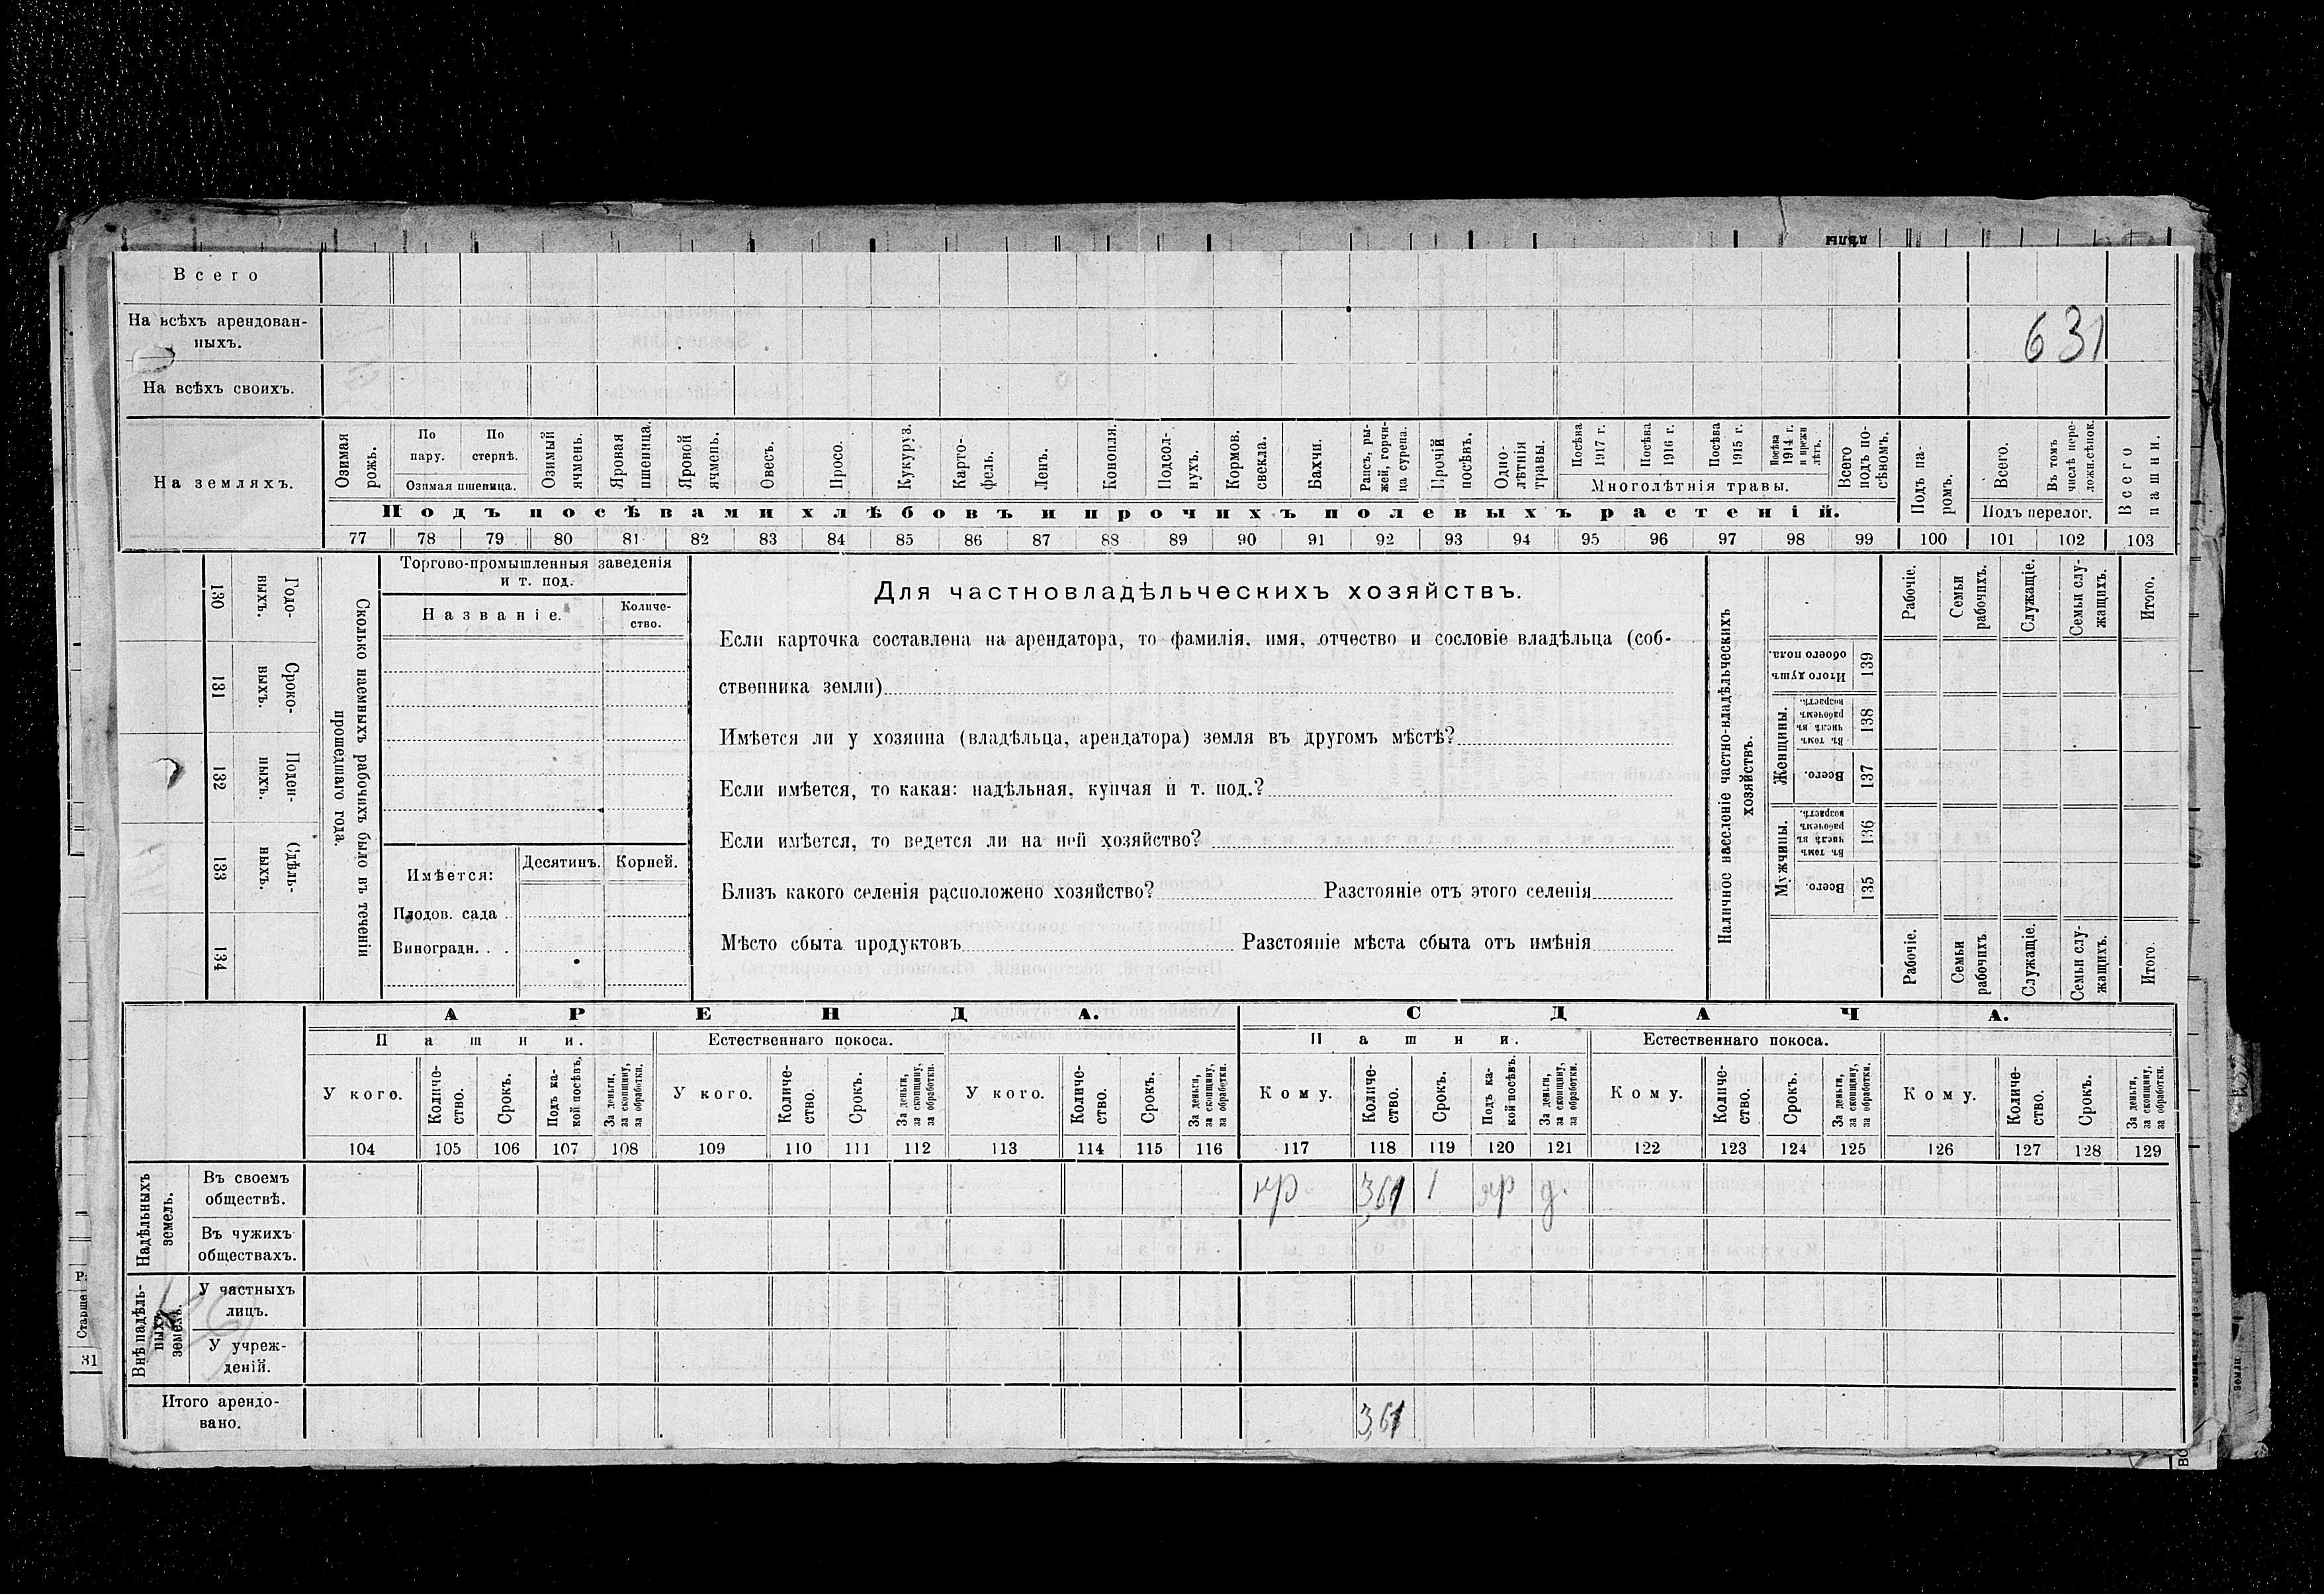 Всего
На всѣхъ арендован-
ныхъ.
631
На всѣхъ своихъ.
На земляхъ.
Озимая рожь.
По пару.
По стернѣ.
Озимая пшеница.
Озимый ячмень.
Яровая пшеница.
Яровой ячмень.
Овесъ.
Просо.
Кукуруз.
Карто-
фель.
Ленъ.
Конопля.
Подсол-
нухъ.
Кормов.
свекла.
Бахчи.
Рапсъ, ры-
жей, горчи-
ца сурепа.
Прочій
посѣвъ.
Одно-
лѣтнія
травы.
Посѣва
1917 г.
Посѣва
1916 г.
Посѣва
1915 г.
Посѣва
1914 г.
и прежн
лѣтъ.
Многолѣтнія травы.
Всего
подъ по-
сѣвомъ.
Подъ па-
ромъ.
Всего.
Въ томъ
числѣ пере-
ложн.сѣнок.
Подъ перелог.
Всего
пашни.
Подъ посѣвами хлѣбовъ и прочихъ полевыхъ растеній.
77 78 79 80 81 82 83 84 85 86 87 88 89 90 91 92 93 94 95 96 97 98 99 100 101 102 103
130
Годо-
выхъ.
131
Сроко-
выхъ.
132
Поден-
ныхъ.
133
Сдѣль-
ныхъ.
134
Сколько наемныхъ рабочихъ было въ теченіи
прошедшаго года.
Торгово-промышленныя заведенія
и т. под.
Названіе.
Количе-
ство.
Имѣется:
Десятинъ.
Корней.
Плодов. сада
Виноградн.
Для частновладѣльческихъ хозяйствъ.
Если карточка составлена на арендатора, то фамилія, имя, отчество и сословіе владѣльца (соб-
ственника земли)
Имѣется ли у хозяина (владѣльца, арендатора) земля въ другомъ мѣстѣ?
Если имѣется, то какая: надѣльная, купчая и т. под.?
Если имѣется, то ведется ли на ней хозяйство?
Близъ какого селенія расположено хозяйство? Разстояніе отъ этого селенія
Мѣсто сбыта продуктовъ Разстояніе мѣста сбыта отъ имѣнія
Наличное населеніе частно-владѣльческихъ
хозяйствъ.
Рабочіе.
Семьи
рабочихъ.
Служащіе.
Семьи слу-
жащихъ.
Итого.
Итого душъ
обоего пола.
139
Женщины.
Въ томъ
числѣ въ
рабочемъ
возрастѣ.
138
Всего.
137
Мужчины.
Въ томъ
числѣ въ
рабочемъ
возрастѣ.
136
Всего.
135
Рабочіе.
Семьи
рабочихъ
Служащіе.
Семьи слу-
жащихъ.
Итого.
АРЕНДА.
СДАЧА.
Пашни.
Естественнаго покоса.
Пашни.
Естественнаго покоса.
У кого.
Количе-
ство.
Срокъ.
Подъ ка-
кой посѣвъ.
За деньги,
за скопщину,
за обработки.
У кого.
Количе-
ство.
Срокъ.
За деньги,
за скопщину,
за обработки.
У кого.
Количе-
ство.
Срокъ.
За деньги,
за скопщину,
за обработки.
Кому.
Количе-
ство.
Срокъ.
Подъ ка-
кой посѣвъ.
За деньги,
за скопщину,
за обработки.
Кому.
Количе-
ство.
Срокъ.
За деньги,
за скопщину,
за обработки.
Кому.
Количе-
ство.
Срокъ.
За деньги,
за скопщину,
за обработки.
104 105 106 107 108 109 110 111 112 113 114 115 116 117 118 119 120 121 122 123 124 125 126 127 128 129
Надѣльныхъ
земель.
Въ своемъ
обществѣ.
кр 3,61 1 яр д.
Въ чужихъ
обществахъ.
Внѣнадѣль-
ныхъ
земель.
У частныхъ
лицъ.
У учреж-
деній.
Итого арендо-
вано.
3,61
Старше
31